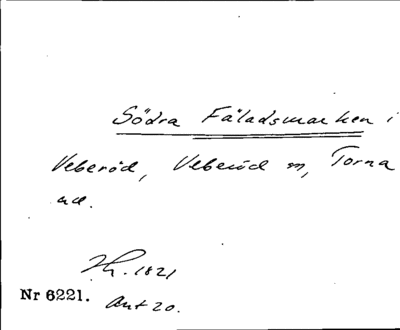 Södra Fäladsmarken i
Veberöd, Veberöd sn, Torna
hd.
1821
Nr 6221. Ant 20.